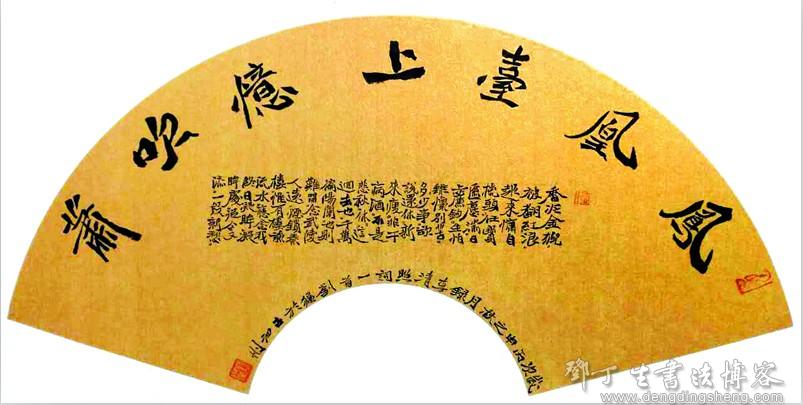 鳳凰臺上憶吹蕭
香冷金猊
被翻紅浪
起來慵自
梳頭任寶
奩塵滿日
上簾鈎生怕
離懷別苦
多少事欲
說還休新
來瘦非干
病酒不是
悲秋休這
回去也千萬
遍陽關也則
難留念武陵
人遠煙鎖秦
樓惟有樓前
流水應念我
終日凝眸凝
眸處從今又
添一段新愁
歲次丙申之秋月錄李清照詞一首劉
鄧丁生書法博客
www.dengdingsheng.com